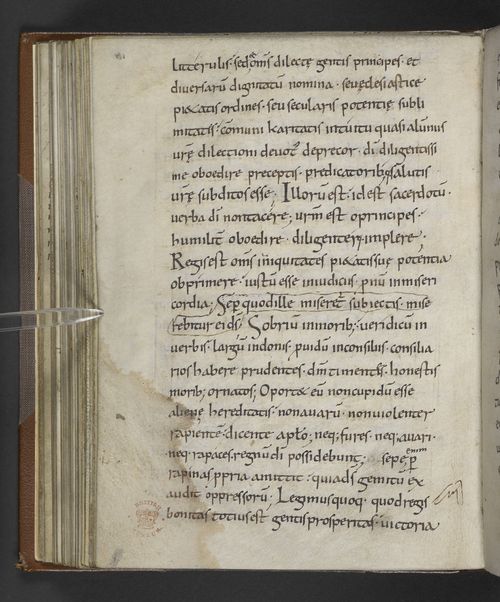 litterulis · sed & om̄s dilectę gentis principes · et
diuersarū dignitatū nomina · seu ęclesiasticę
pietatis ordines · seu secularis potentię subli
mitates · cōmuni karitatis intuitu quasi alūnus
urę̄ dilectioni deuot; deprecor · dī diligentissi
me oboedire preceptis · predicatoribq; salutis
urę̄ subditos esse; Illorū est · id est sacerdotū ·
uerba dī non tacere; urm̄ est o principes ·
humilit̄ oboedire · diligenterq; implere;
Regis est om̄s iniquitates pietatis suę potentia
obprimere · iustū esse in iudiciis · pnū in miseri
cordia; Sep̄ quod ille miseret̄ subiectis · mise
rebitur ei d̄s; Sobriū in morib; ueridicū in
uerbis · largū in donis · puidū in consiliis · consilia
rios habere prudentes · dm̄ timentes · honestis
morib; ornatos; Oportet eū non cupidū esse
alienę hereditatis · non auarū · non uiolenter
rapientē · dicente apl̄o; neq; fures · neq; auari ·
neq; rapaces regnū dī possidebunt; sepe enim p̄
rapinas ppria amittit · quia d̄s gemitū ex
audit oppressorū; Legimus quoq; quod regis
bonitas totius est gentis prosperitas · uictoria